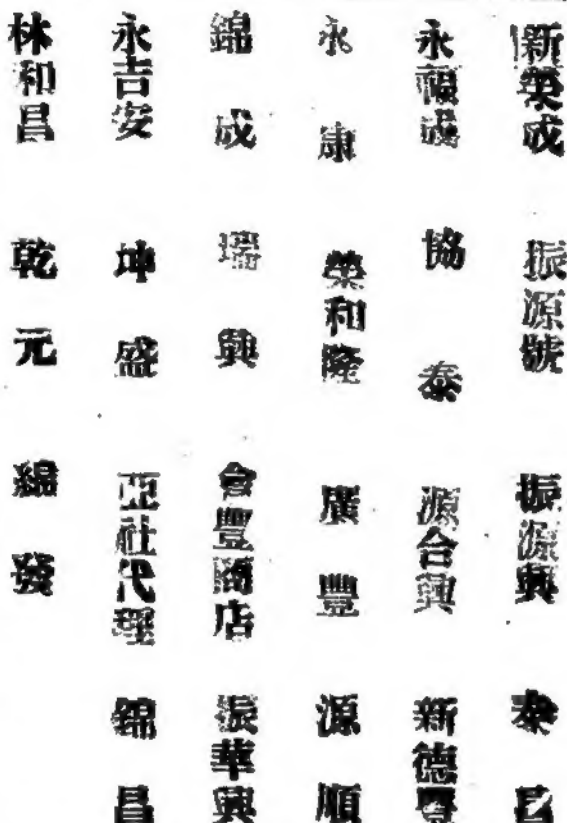 新榮成 振源號 振源興 泰昌
永福成 協泰 源合興 新德豐
永康 榮和隆 廣豐 源順
錦成 瑞興 會豐商店 振華興
永吉安 坤盛 亞社代理 錦昌
林和昌 乾元 綿發